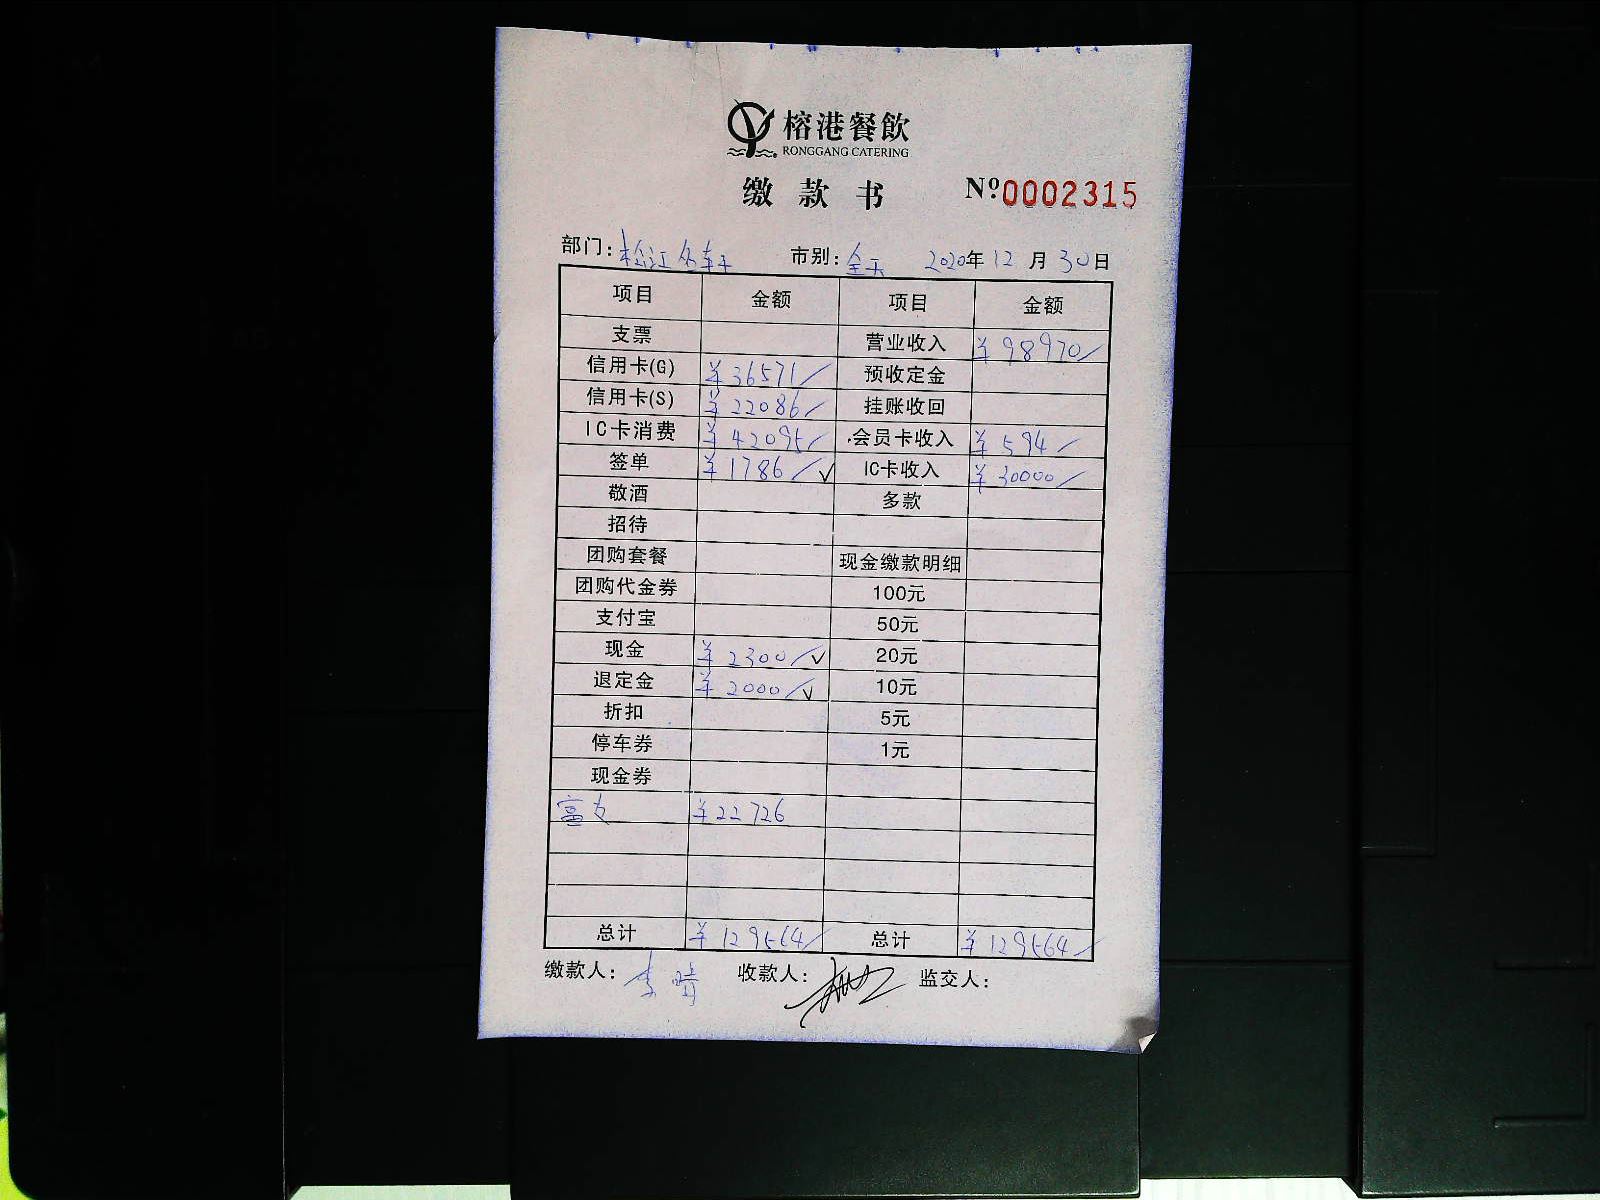 榕港餐飲
RONGGANG CATERING
缴款书 Nº0002315
部门: 松江名轩 市别: 全天 2020年12月30日
项目 金额 项目 金额
支票 营业收入 ¥98970
信用卡(G) ¥36571 预收定金
信用卡(S) ¥22086 挂账收回
IC卡消费 ¥42095 会员卡收入 ¥594
签单 ¥1786 ✓ IC卡收入 ¥30000
敬酒 多款
招待
团购套餐 现金缴款明细
团购代金券 100元
支付宝 50元
现金 ¥2300 ✓ 20元
退定金 ¥2000 ✓ 10元
折扣 5元
停车券 1元
现金券
¥22726
总计 ¥129564 总计 ¥129564
缴款人: 李晴 收款人: 监交人: